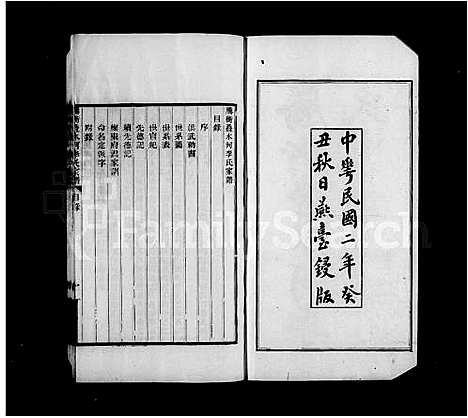 中華民國二年癸
丑秋日燕臺鋟版
馮街桑木河李氏家譜
目錄
序
洪武勅書
世系圖
世系表
世官紀
先德記
續先德記
家訓
命名定派字
附錄
目錄
FamilySearch